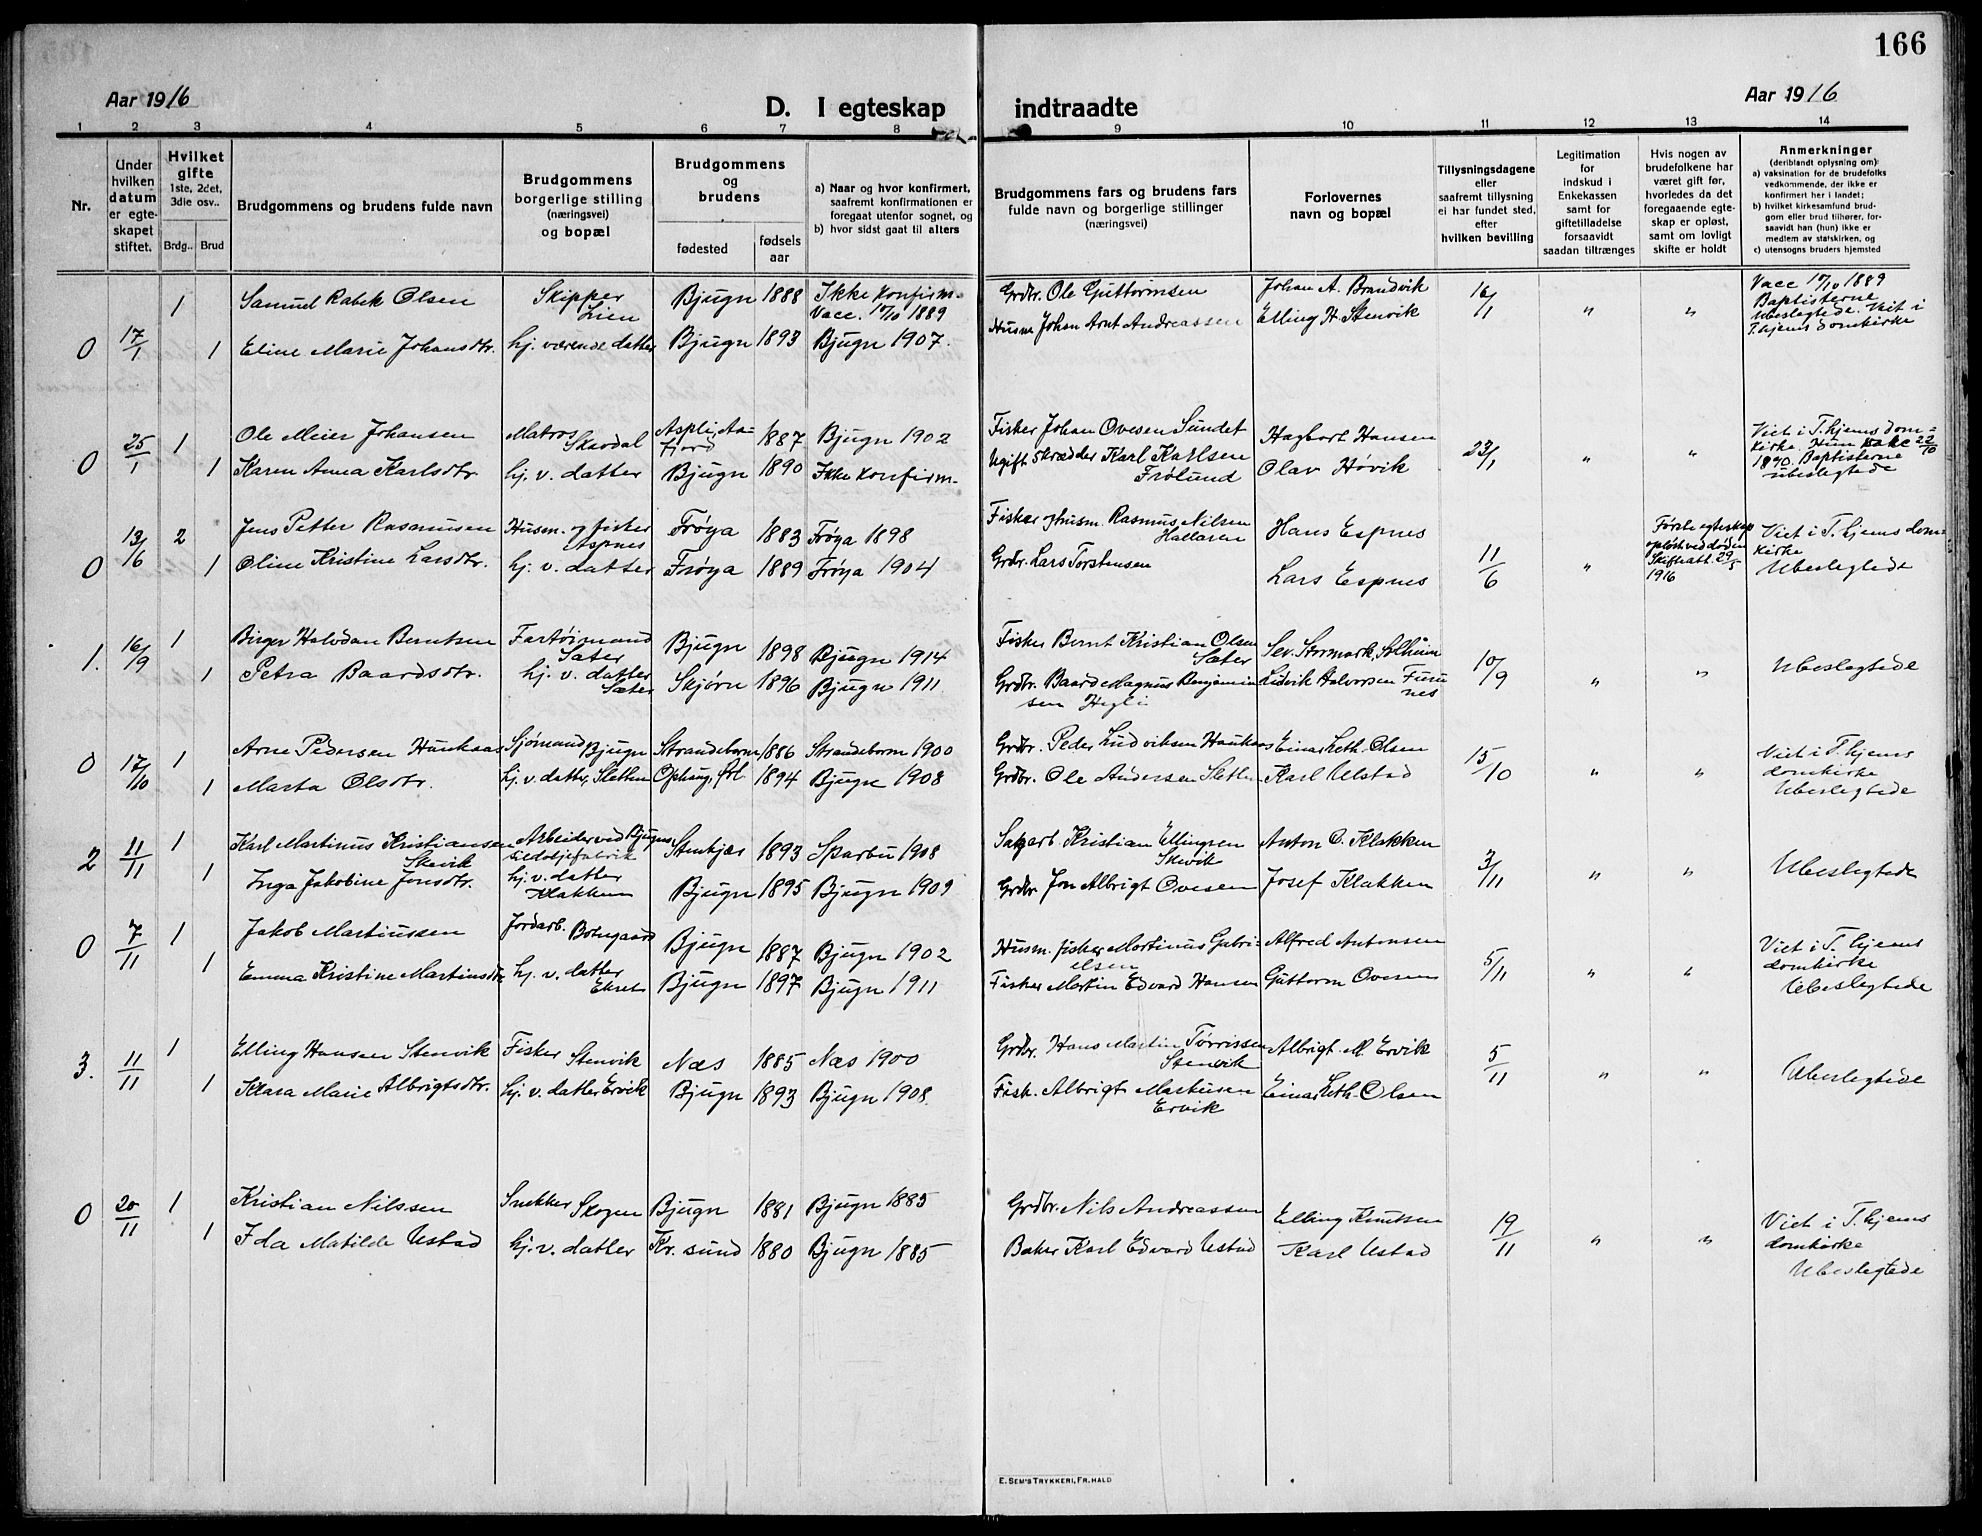 166
Aar 1916
D. I egteskap indtraadte
Aar 1916
1 2 3 4 5 6 7 8 9 10 11 12 13 14
Nr.
Under hvilken datum er egteskapet stiftet.
Hvilket gifte 1ste, 2det, 3die osv..
Brdg.. Brud
Brudgommens og brudens fulde navn
Brudgommens borgerlige stilling (næringsvei) og bopæl
Brudgommens og brudens
fødested
fødsels aar
a) Naar og hvor konfirmert, saafremt konfirmationen er foregaat utenfor sognet, og
b) hvor sidst gaat til alters
Brudgommens fars og brudens fars fulde navn og borgerlige stillinger (næringsvei)
Forlovernes navn og bopæl
Tillysningsdagene eller saafremt tillysning ei har fundet sted, efter hvilken bevilling
Legitimation for indskud i Enkekassen samt for giftetilladelse forsaavidt saadan tiltrænges
Hvis nogen av brudefolkene har været gift før, hvorledes da det foregaaende egteskap er opløst, samt om lovligt skifte er holdt
Anmerkninger (deriblandt oplysning om):
a) vaksination for de brudefolks vedkommende, der ikke er konfirmert her i landet;
b) hvilket kirkesamfund brudgom eller brud tilhører, forsaavidt han (hun) ikke er medlem av statskirken, og
c) utensogns bruders hjemsted
1 Samuel Rabek Olsen Skipper Lien Bjugn 1888 Ikke konfirm. Vacc. 17/10 1889 Grdbr. Ole Guttormsen Johan A. Brandvik 16/1 " " Vacc 17/10 1889 Baptisterne Ubeslegtede. Viet i T.hjems domkirke
0 17/1 1 Eline Marie Johansdtr. hj. værende datter Bjugn 1893 Bjugn 1907. Husm Johan Arnt Andreassen Elling H. Stenvik
25/1 1 Ole Meier Johansen Matros Skavdal Aspli, Aafjord 1887 Bjugn 1902 Fisker Johan Ovesen Sundet Hagbart Hansen 23/1 " " Viet i T.hjems domkirke Hun vakc 22/10 1890. Baptisterne ubeslegtede
0 1 Karen Anna Karlsdtr. hj. v. datter Bjugn 1890 Ikke konfirm. Ugift Skrædder Karl Karlsen Frølund Olav Høvik
13/6 2 Jens Petter Rasmussen Husm. og fisker Aspnes Frøya 1883 Frøya 1898 Fisker og husm. Rasmus Nilsen Hallaren Hans Espnes 11/6 " Første egteskap opløst ved døden Skifteatt. 29/5 1916 Viet i T.hjems domkirke Ubeslegtede
0 1 Oline Kristine Larsdtr. hj. v. datter Frøya 1889 Frøya 1904 Grdbr. Lars Torstensen Lars Espnes
1. 16/9 1 Birger Halvdan Berntsen Fartøimand Sæter Bjugn 1898 Bjugn 1914 Fisker Bernt Kristian Olsen Sæter Sev. Stormark, Solheim 10/9 " " Ubeslegtede
1 Petra Baardsdtr. hj. v. datter Sæter Skjørn 1896 Bjugn 1911 Grdbr. Baard Magnus Benjaminsen Hegli Ludvik Halvorsen Furunes
0 17/10 1 Arne Pedersen Haukaas Sjømand Bjugn Strandebarm 1886 Strandebarm 1900 Grdbr. Peder Ludviksen Haukaas Einar Leth-Olsen 15/10 " " Viet i T.hjems domkirke Ubeslegtede
1 Marta Olsdtr. hj. v. datter, Sletten Ophaug, Ørl 1894 Bjugn 1908 Grdbr. Ole Andersen Sletten Karl Ulstad
2 11/11 1 Karl Martinus Kristiansen Skevik Arbeider ved Bjugns sildoljefabrik Stenkjær 1893 Sparbu 1908 Sagarb. Kristian Ellingsen Skevik Anton O. Klakken 3/11 " " Ubeslegtede
1 Inga Jakobine Jonsdtr. hj. v. datter Klakken Bjugn 1895 Bjugn 1909 Grdbr Jon Albrigt Ovesen Josef Klakken
0 7/11 1 Jakob Martinussen Jordarb. Botngaard Bjugn 1887 Bjugn 1902 Husm. fisker Martinus Gabrielsen Alfred Antonsen 5/11 " " Viet i T.hjems domkirke Ubeslegtede
1 Emma Kristine Martinsdtr hj. v. datter Ekret Bjugn 1897 Bjugn 1911 Fisker Martin Edvard Hansen Guttorm Ovesen
3. 11/11 1 Elling Hansen Stenvik Fisker Stenvik Næs 1885 Næs 1900 Grdbr. Hans Martin Tørrissen Stenvik Albrigt M. Ervik 5/11 " " Ubeslegtede
1 Klara Marie Albrigtsdtr. hj. v. datter Ervik Bjugn 1893 Bjugn 1908. Fisk. Albrigt Martinsen Ervik Einar Leth-Olsen
0 20/11 1 Kristian Nilssen Snekker Skogen Bjugn 1881 Bjugn 1885 Grdbr. Nils Andreassen Elling Knutsen 19/11 " " Viet i T.hjems domkirke Ubeslegtede
1 Ida Matilde Ustad hj. v. datter Kr. sund 1880 Bjugn 1885 Baker Karl Edvard Ustad Karl Ustad
E. SEM'S TRYKKERI, FR.HALD